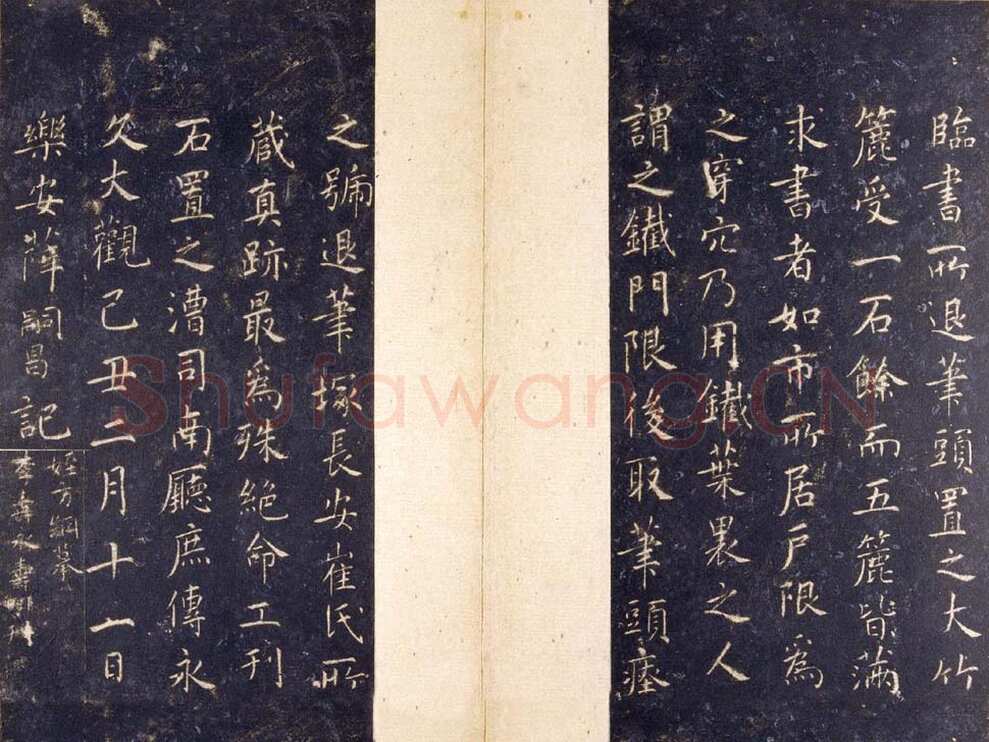 臨書所退筆頭置之大竹
簏受一石餘而五簏皆滿
求書者如市所居戶限為
之穿穴乃用鐵葉裹之人
謂之鐵門限後取筆頭瘞
之號退筆塚長安崔氏所
蔵真跡最為殊絕命工刊
石置之漕司南廳庶傳永
久大觀己丑二月十一日
樂安薛嗣昌記
姪方綱摹
李壽永壽明刊
Shufawang.CN